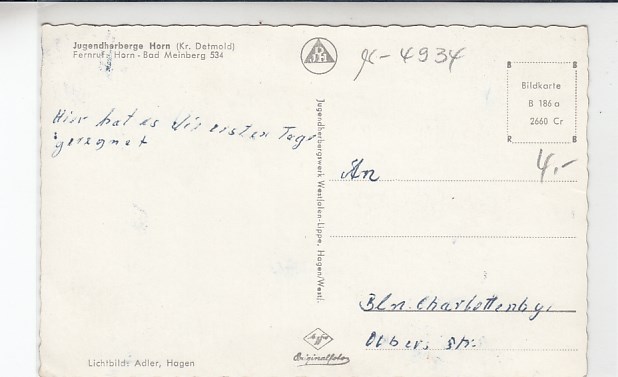 Jugendherberge Horn (Kr. Detmold)
Fernruf: Horn - Bad Meinberg 534
4934
Bildkarte
B 186 a
2660 Cr
R B
4,-
Hier hat es die ersten Tage
geregnet
Jugendherbergswerk Westfalen-Lippe, Hagen/Westf.
An
Bln. Charlottenbg.
Olbers Str.
Agfa
Originalfoto
Lichtbild: Adler, Hagen